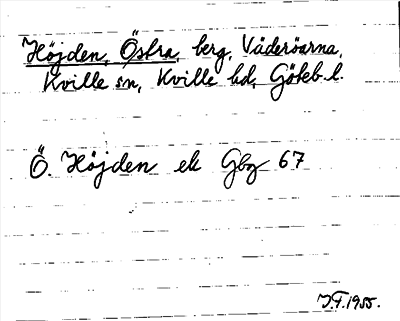 Höjden, Östra, berg, Väderöarna,
Kville sn, Kville hd, Göteb. l.
Ö. Höjden ek Gbg 67
J.F. 1955.